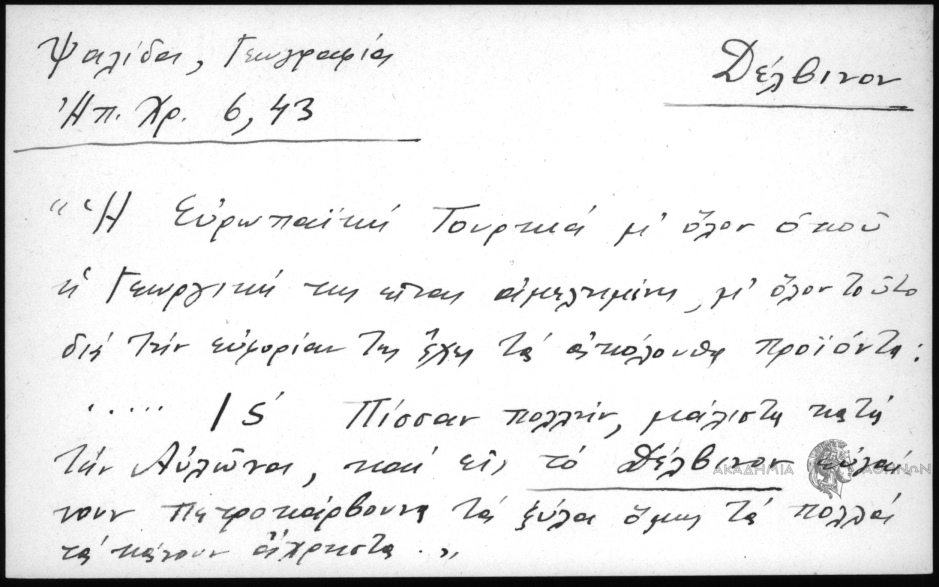 Ψαλίδας, Γεωγραφία
Ἠπ. Χρ. 6, 43
Δέλβινον
"Ἡ Εὐρωπαϊκή Τουρκιά μ' ὅλον ὁποῦ
ἡ Γεωργική της εἶναι ἀμελημένη, μ' ὅλον τοῦτο
διά τήν εὐφορίαν της ἔχει τά ἀκόλουθα προϊόντα:
..... Ις´ Πίσσαν πολλήν, μάλιστα κατά
τήν Αὐλῶνα, καί εἰς τό Δέλβινον
ΑΚΑΔΗΜΙΑ ΑΘΗΝΩΝ
νουν πετροκάρβουνα τά ξύλα ὅμως τά πολλά
τά κάνουν ἄχρηστα."